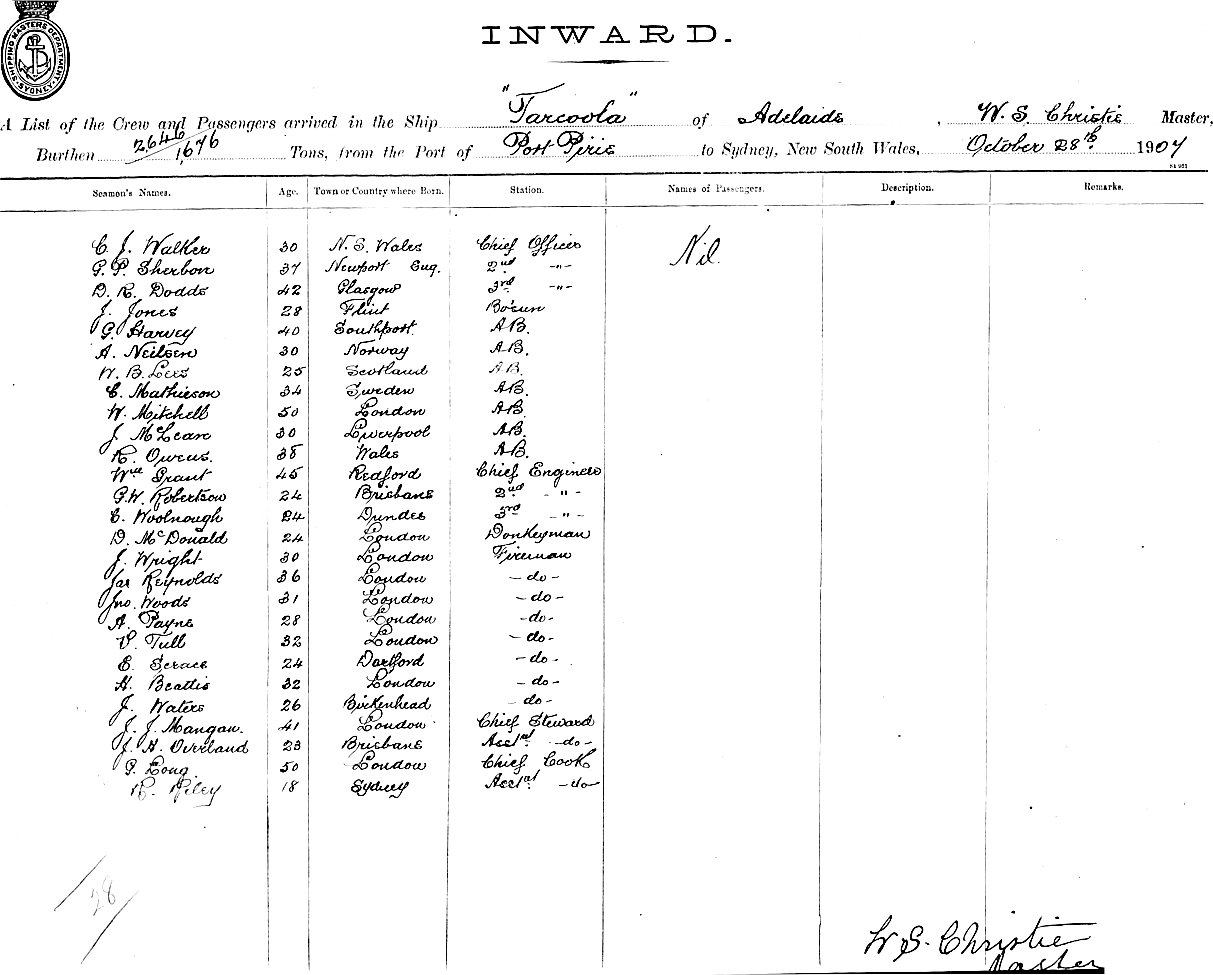 SHIPPING MASTERS DEPARTMENT SYDNEY
INWARD.
A List of the Crew and Passengers arrived in the Ship "Tarcoola" of Adelaide, W. S. Christie Master,
Burthen 2646/1676 Tons, from the Port of Port Pirie to Sydney, New South Wales, October 28th 1907
Seamen's Names. Age. Town or Country where Born. Station. Names of Passengers. Description. Remarks.
C. J. Walker 30 N. S. Wales Chief Officer Nil.
G. P. Sherbon 37 Newport Eng. 2nd -"-
D. R. Dodds 42 Glasgow 3rd -"-
J. Jones 28 Flint Bo'sun
G. Harvey 40 Southport. A.B.
A. Neilsen 30 Norway A.B.
W. B. Lees 25 Scotland A.B.
C. Mathieson 34 Sweden A.B.
W. Mitchell 50 London A.B.
J. McLean 30 Liverpool A.B.
R. Owens. 38 Wales A.B.
Wm Grant 45 Redford Chief Engineer
G. W. Robertson 24 Brisbane 2nd -"-
C. Woolnough 24 Dundee 3rd -"-
D. McDonald 24 London Donkeyman
J. Wright 30 London Fireman
Jas Reynolds 36 London -do-
Jno. Woods 31 London -do-
A. Payne 28 London -do-
V. Tull 32 London -do-
E. Scrace 24 Dartford -do-
H. Beattie 32 London -do-
J. Waters 26 Birkenhead -do-
J. J. Mangan. 41 London Chief Steward
J. H. Overland 23 Brisbane Asst -do-
P. Long 50 London Chief Cook
R. Riley 18 Sydney Asst -do-
28
W. S. Christie
Master